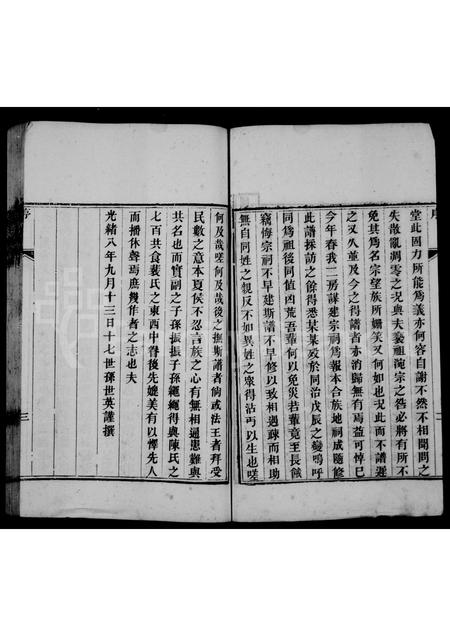 堂此固力所能爲義亦何容自謝不然不相聞問之
失散亂凋零之況與夫褻祖淹宗之咎必將有所不
免其爲名宗望族所姍笑又何如也况此而不譜遲
之又久並及今之得譜者亦消歸無有焉益可悼巳
今年春我二房謀建宗祠爲報本合族地祠成隨修
此譜採訪之餘得悉某某歿於同治戊辰之變嗚呼
同爲祖後同值凶荒吾輩何以免災若輩竟至長餓
竊悔宗祠不早建斯譜不早修以致相遇疎而相助
無自同姓之親反不如異姓之衆得沾丐以生也嗟
何及哉嗟何及哉後之撫斯譜者倘或法王者拜受
民數之意本夏侯不忍言族之心有無相通患難與
共名也而實副之子孫振振子孫繩繩得與陳氏之
七百共食裴氏之東西中眷後先媲美有以懌先人
而播休聲焉庶幾作者之志也夫
光緒八年九月十三日十七世孫世英謹撰
序
三